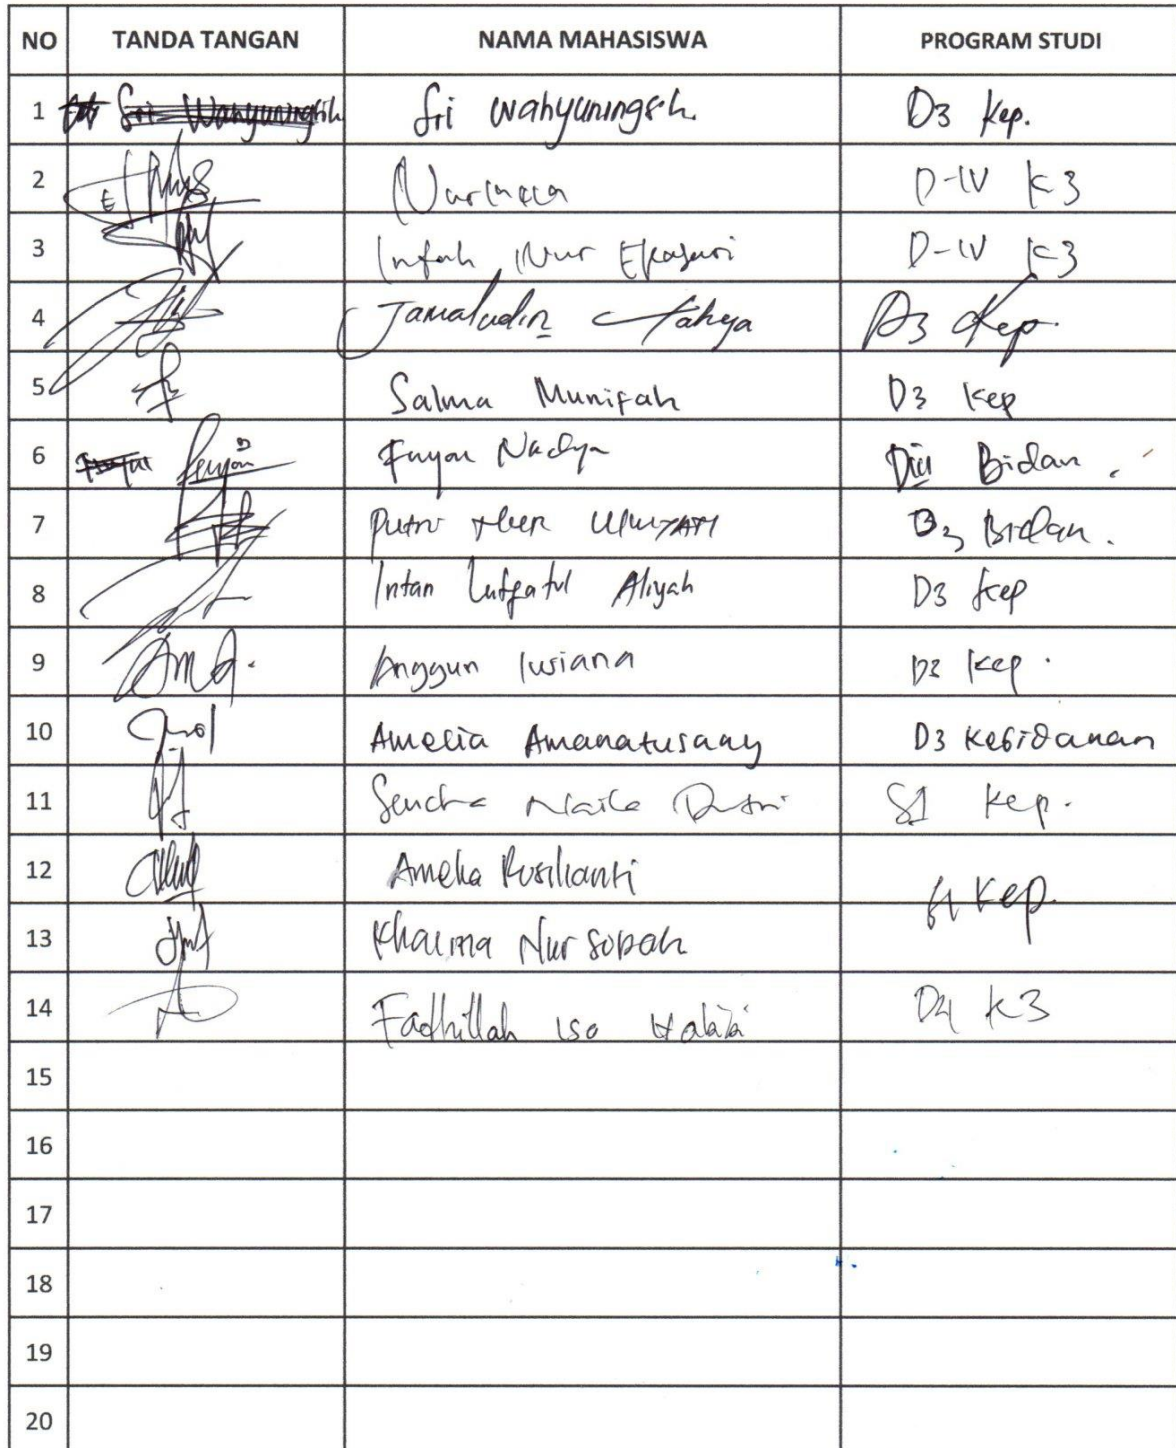 NO TANDA TANGAN NAMA MAHASISWA PROGRAM STUDI
1 Sri Wahyuningsih Sri Wahyuningsih D3 Kep.
2 D-IV K3
3 Nur D-IV K3
4 Jamaludin Yahya D3 Kep.
5 Salma Munifah D3 Kep
6 Nadya DIII Bidan
7 Putri D3 Bidan.
8 Intan Lutfatul Aliyah D3 Kep
9 Anggun lusiana D3 Kep.
10 Amelia D3 Kebidanan
11 Naila Putri S1 Kep.
12 Amelia Rusilianti
S1 Kep
13 Nur Sobah
14 Fadhillah D4 K3
15
16
17
18
19
20